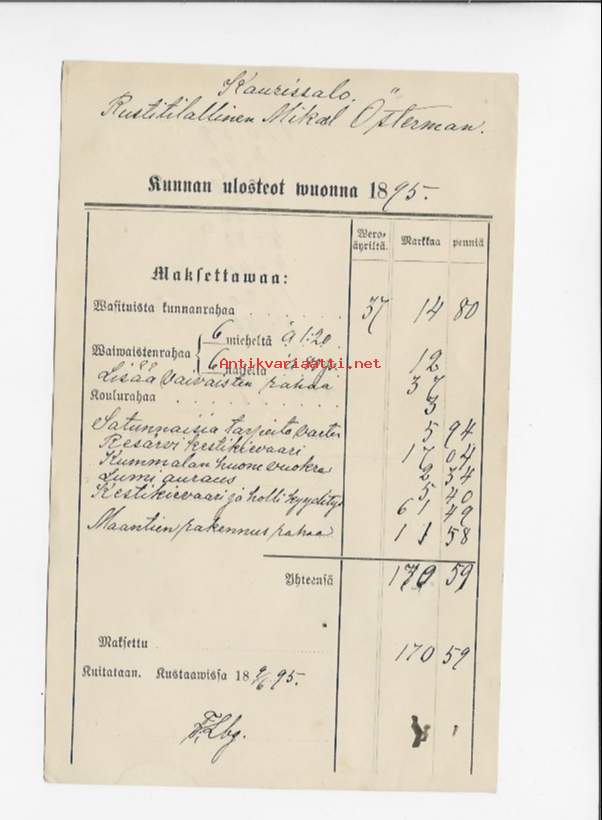 Kaurissalo.
Rustitilallinen Mikael Österman.
Kunnan ulosteot wuonna 1895.
Wero-äyriltä. Markkaa penniä
Maksettawaa:
Wasituista kunnanrahaa 37 14 80
Waiwaistenrahaa { 6 mieheltä à 1:20
6 naiselta 12
Lisää Vaivaisten rahaa 37
Koulurahaa 3
Satunnaisia tarpeita varten 5 94
Resärvi kestikievaari 17 04
Kummalan huone vuokra 2 34
Lumi auraus 5 40
Kestikievaari ja holli kyyditys 61 49
Maantien rakennus rahaa 11 58
Yhteensä 170 59
Maksettu 170 59
Kuitataan. Kustaawissa 18 9/6 95.
F. Lbg.
Antikvariaatti.net